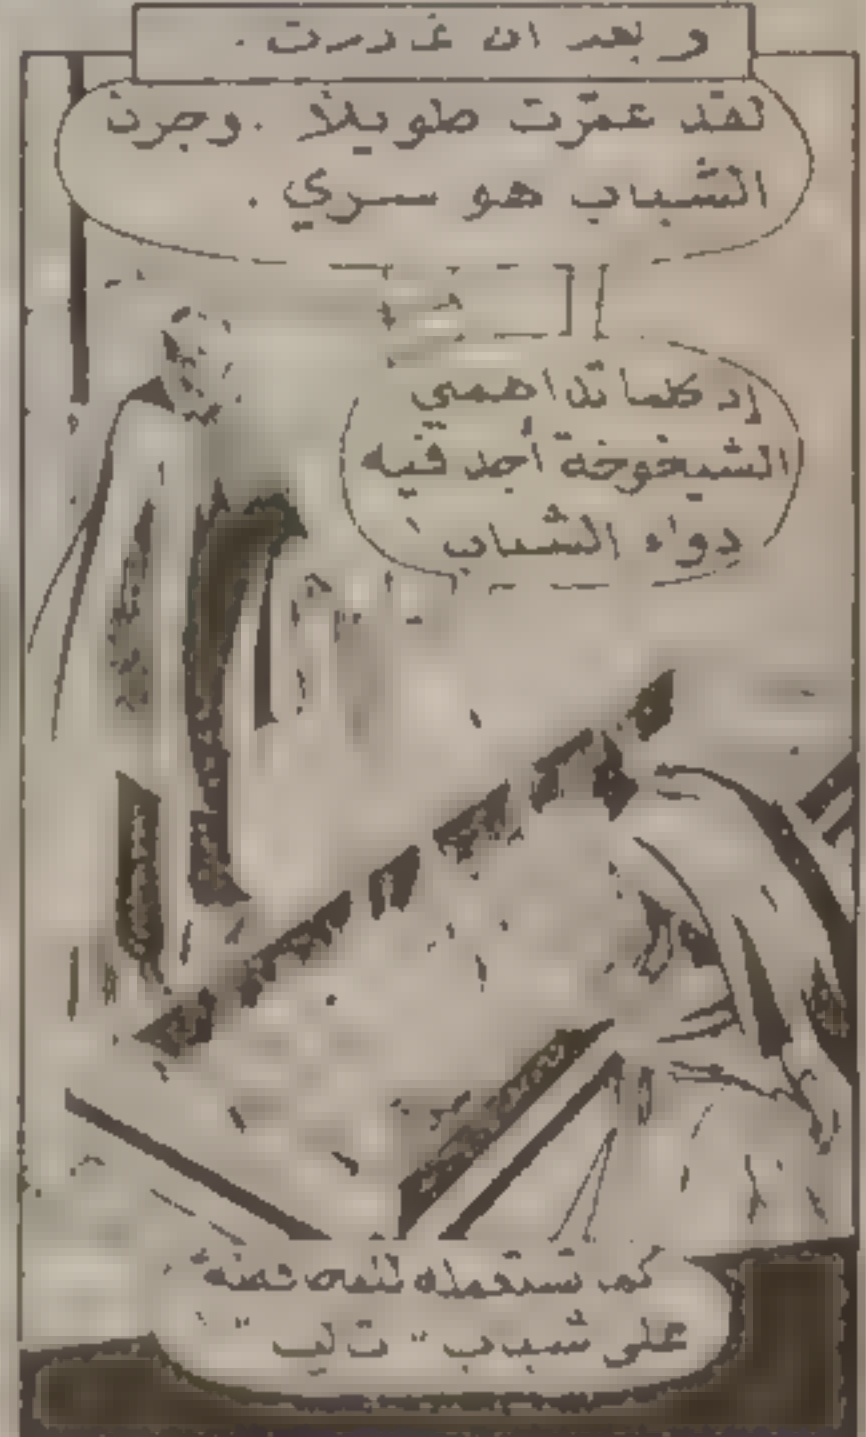 و بعد ان غادرت .
لقد عمّرت طويلاً . وجرن
الشباب هو سري .
إذ كلما تداهمني
الشيخوخة أجد فيه
دواء الشباب
كما تستعمله للمحافظة
على شباب " تاليا "